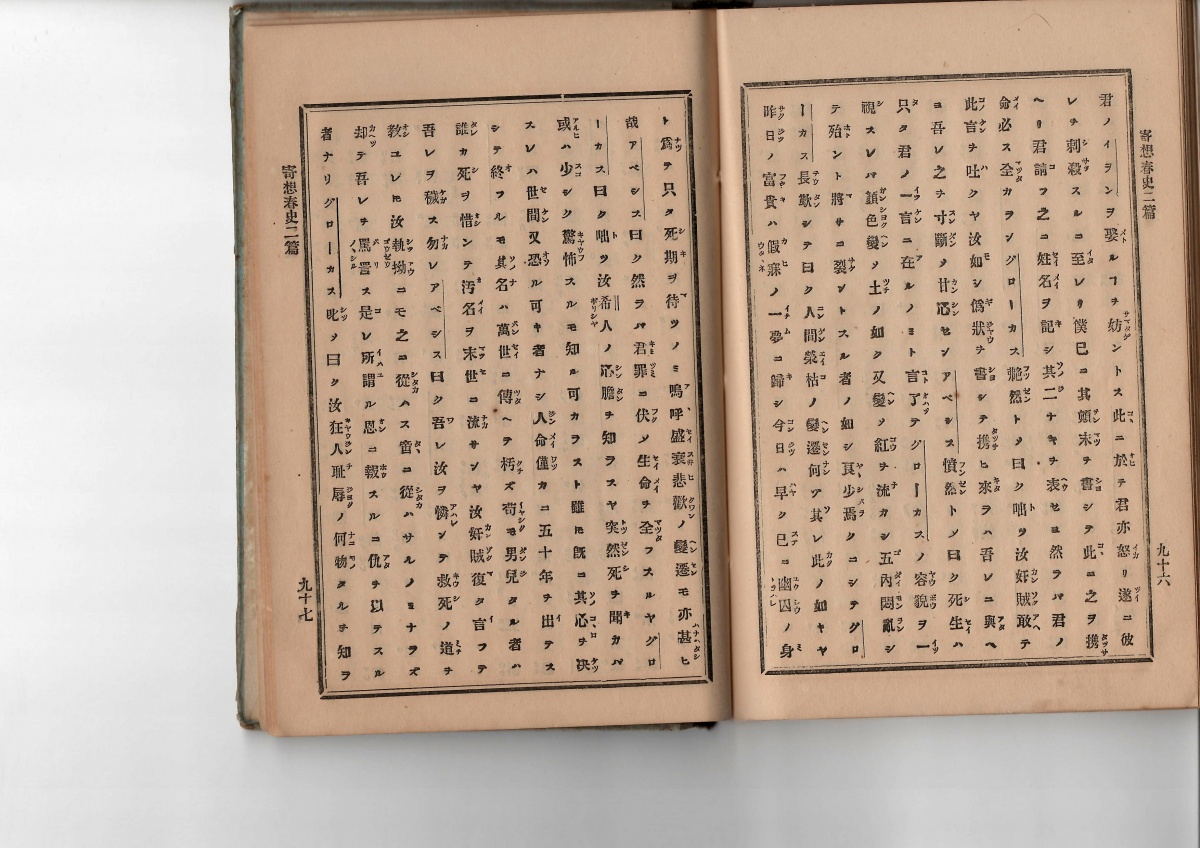 寄想春史二篇
九十六
君ノイヲンヲ娶ルヿヲ妨ントス此ニ於テ君亦怒リ遂ニ彼
レヲ刺殺スルニ至レリ僕已ニ其顛末ヲ書シテ此ニ之ヲ携
ヘリ君請フ之ニ姓名ヲ記シ其二ナキヲ表セヨ然ラバ君ノ
命必ス全カラングローカス艴然トメ曰ク咄ヲ汝奸賊敢テ
此言ヲ吐クヤ汝如シ僞狀ヲ書シテ携ヒ來ラハ吾レニ與ヘ
ヨ吾レ之ヲ寸斷メ廿心センアベシス憤然トメ曰ク死生ハ
只タ君ノ一言ニ在アルノミト言了テグローカスノ容貌ヲ一
視スレバ顏色變メ土ノ如ク又變メ紅ヲ流カシ五內悶亂シ
テ殆ント將サニ裂ントスル者ノ如シ頁少焉クニシテグロ
ーカス長歎シテ曰ク人間榮枯ノ變遷何ソ其レ此ノ如ヤヤ
昨日ノ富貴ハ假寐ノ一夢ニ歸シ今日ハ早ク已ニ幽囚ノ身
ト爲テ只タ死期ヲ待ツノミ嗚呼盛衰悲歡ノ變遷モ亦甚ヒ
哉アベシス曰ク然ラバ君罪ニ伏メ生命ヲ全フスルヤグロ
ーカス曰ク咄ツ汝希人ノ心膽ヲ知ラスヤ突然死ヲ聞カバ
或ハ少シク驚怖スルモ知ル可カラスト雖ヒ旣ニ其心ヲ决
スレハ世間又恐ル可キ者ナシ人命僅カニ五十年ヲ出テス
シテ終フルモ其名ハ萬世ニ傳ヘテ朽ズ苟モ男兒タル者ハ
誰カ死ヲ惜ンテ汚名ヲ末世ニ流サンヤ汝奸賊復タ言フテ
吾レヲ穢ス勿レアベシス曰ク吾レ汝ヲ憐ンテ救死ノ道ヲ
敎ユレヒ汝執拗ニモ之ニ從ハス啻ニ從ハサルノミナラズ
却テ吾レヲ罵詈ス是レ所謂ル恩ニ報スルニ仇ヲ以テスル
者ナリグローカス叱メ曰ク汝狂人耻辱ノ何物タルヲ知ヲ
寄想春史二篇
九十七